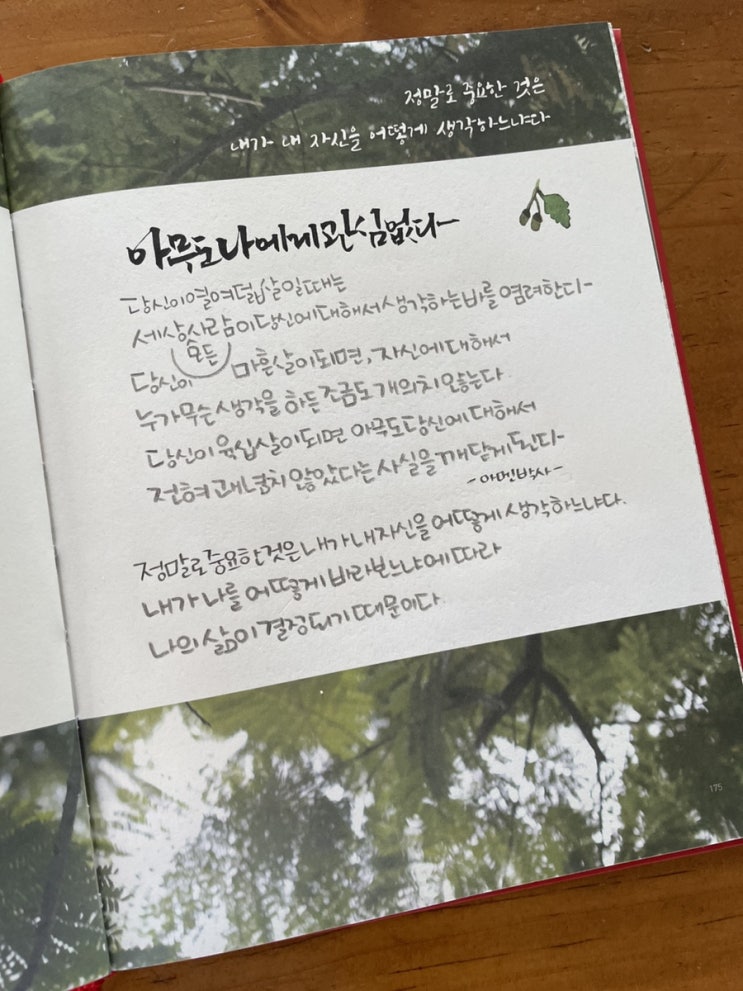 정말로 중요한 것은
내가 내 자신을 어떻게 생각하느냐다
아무도 나에게 관심 없다
당신이 열여덟 살일 때는
세상 사람이 당신에 대해서 생각하는 바를 염려한다
모든
당신이 마흔 살이 되면, 자신에 대해서
누가 무슨 생각을 하든 조금도 개의치 않는다
당신이 육십 살이 되면 아무도 당신에 대해서
전혀 괘념치 않았다는 사실을 깨닫게 된다
- 아멘 박사 -
정말로 중요한 것은 내가 내 자신을 어떻게 생각하느냐다.
내가 나를 어떻게 바라보느냐에 따라
나의 삶이 결정되기 때문이다.
175